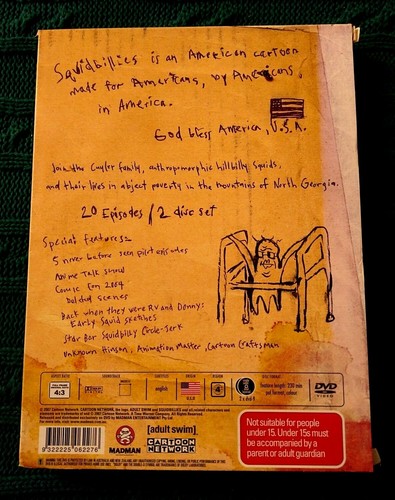 Squidbillies is an American cartoon
made for Americans, by Americans,
in America.
God bless America, U.S.A.
Join the Cuyler family, anthropomorphic hillbilly squids,
and their lives in abject poverty in the mountains of North Georgia.
20 Episodes / 2 disc set
Special features:
5 never before seen pilot episodes
Anime Talk Show
Comic Con 2004
Deleted scenes
Back when they were RV and Donny:
Early Squid sketches
Star Bar Squidbilly Circle-Jerk
Unknown Hinson, Animation Master, Cartoon Craftsman
4:3
english
U.S.A
4
2 x dvd
DVD
VIDEO
[adult swim]
MADMAN
CARTOON NETWORK
9 322225 062276
Not suitable for people
under 15. Under 15s must
be accompanied by a
parent or adult guardian